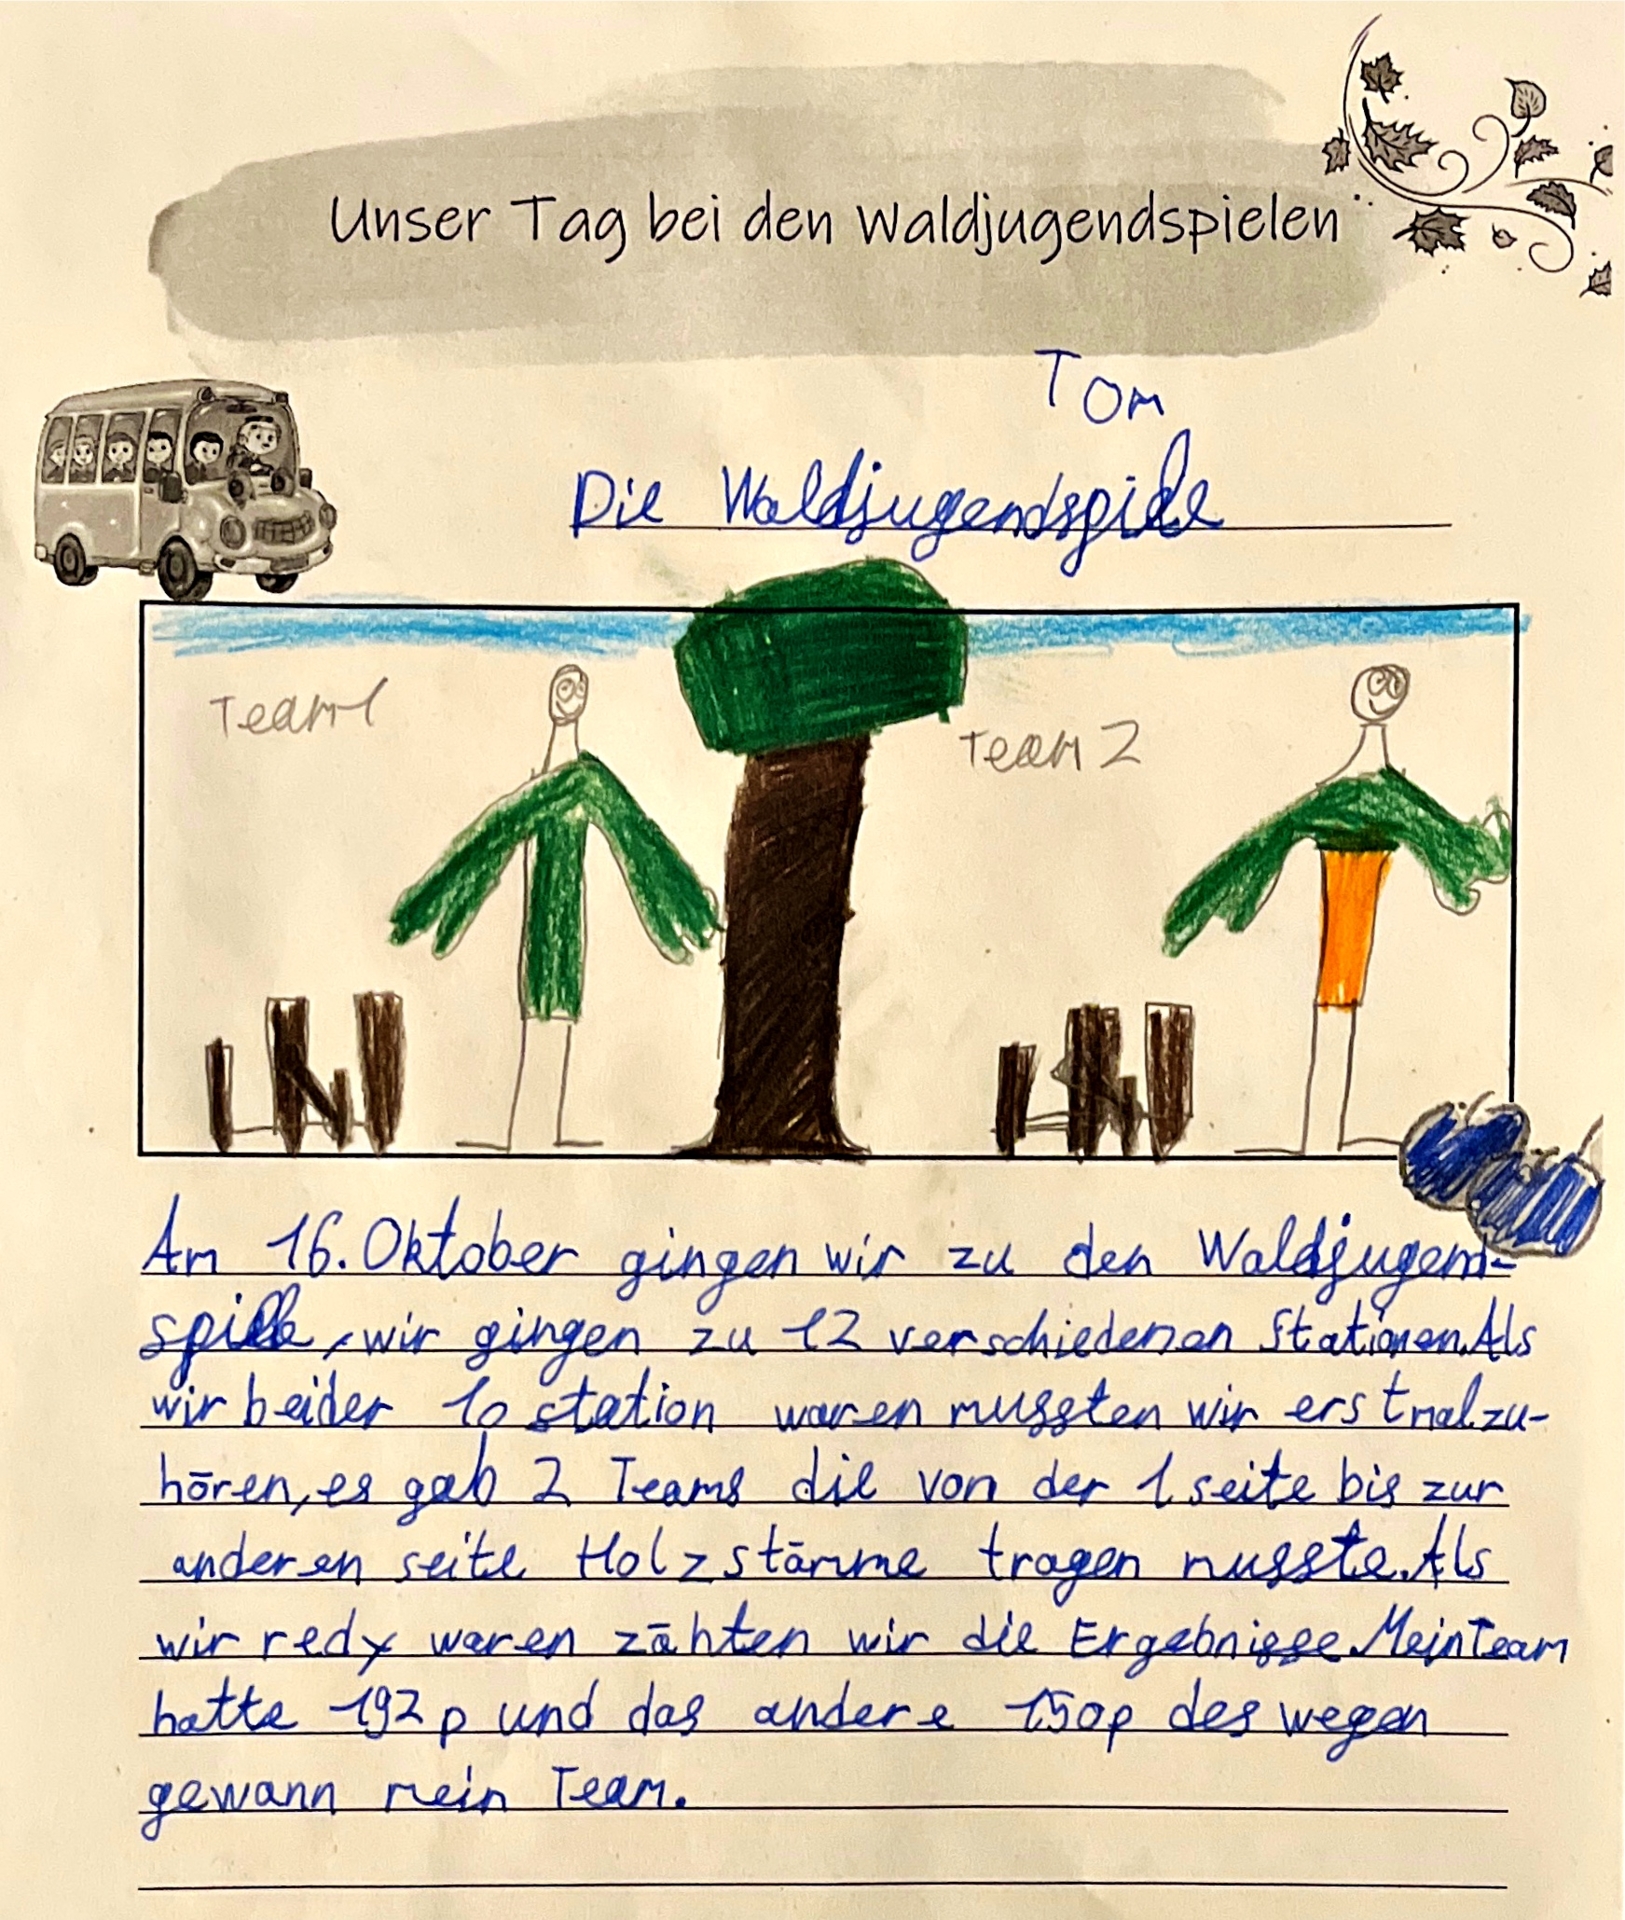 Unser Tag bei den Waldjugendspielen
Tom
Die Waldjugendspiele
Team 1
Team 2
Am 16. Oktober gingen wir zu den Waldjugend-
spiele, wir gingen zu 12 verschiedenen Stationen. Als
wir bei der 10 station waren mussten wir erstmal zu-
hören, es gab 2 Teams die von der 1 seite bis zur
anderen seite Holzstämme tragen musste. Als
wir redy waren zähten wir die Ergebnisse. Mein Team
hatte 192 p und das andere 150p des wegen
gewann mein Team.